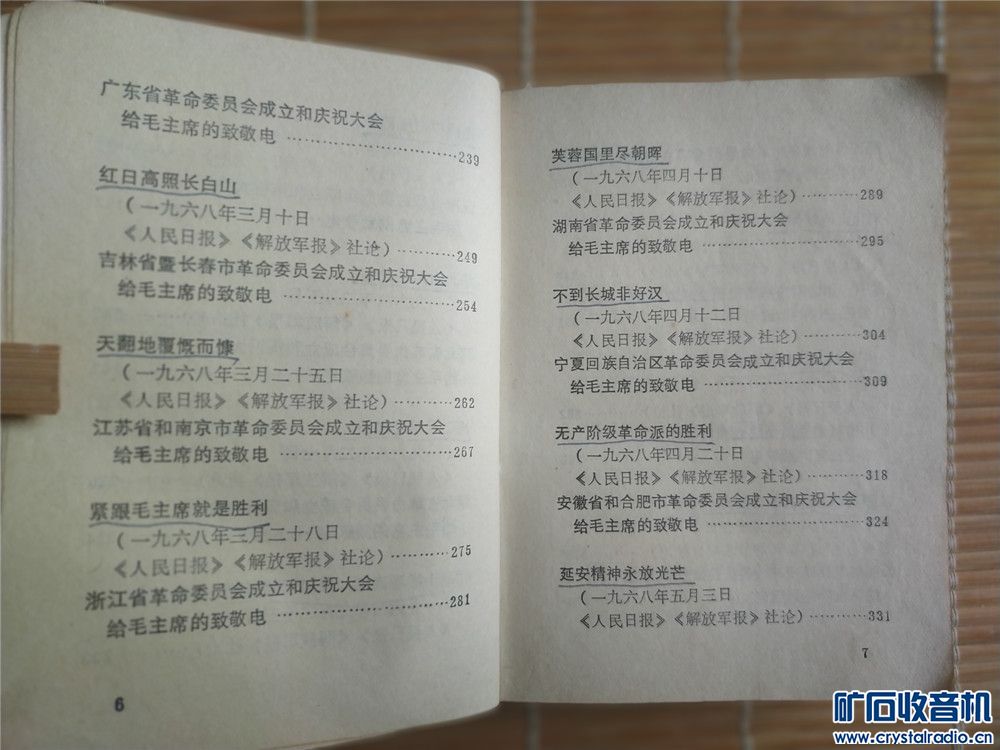 广东省革命委员会成立和庆祝大会
给毛主席的致敬电 ……………………239
红日高照长白山
(一九六八年三月十日
《人民日报》《解放军报》社论) ………249
吉林省暨长春市革命委员会成立和庆祝大会
给毛主席的致敬电 ……………………254
天翻地覆慨而慷
(一九六八年三月二十五日
《人民日报》《解放军报》社论) ………262
江苏省和南京市革命委员会成立和庆祝大会
给毛主席的致敬电 ……………………267
紧跟毛主席就是胜利
(一九六八年三月二十八日
《人民日报》《解放军报》社论) ………275
浙江省革命委员会成立和庆祝大会
给毛主席的致敬电 ……………………281
6
芙蓉国里尽朝晖
(一九六八年四月十日
《人民日报》《解放军报》社论) ………289
湖南省革命委员会成立和庆祝大会
给毛主席的致敬电 ……………………295
不到长城非好汉
(一九六八年四月十二日
《人民日报》《解放军报》社论) ………304
宁夏回族自治区革命委员会成立和庆祝大会
给毛主席的致敬电 ……………………309
无产阶级革命派的胜利
(一九六八年四月二十日
《人民日报》《解放军报》社论) ………318
安徽省和合肥市革命委员会成立和庆祝大会
给毛主席的致敬电 ……………………324
延安精神永放光芒
(一九六八年五月三日
《人民日报》《解放军报》社论) ………331
7
矿石收音机
www.crystalradio.cn